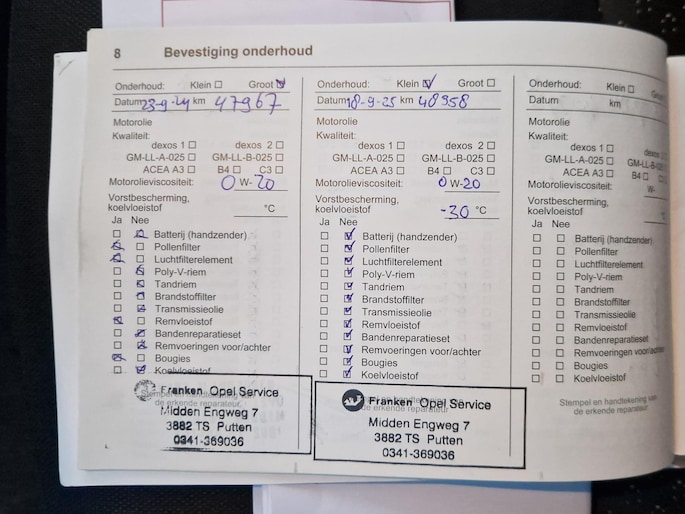 8 Bevestiging onderhoud
Onderhoud: Klein Groot
Datum 23-9-24 km 47967
Motorolie
Kwaliteit:
dexos 1 dexos 2
GM-LL-A-025 GM-LL-B-025
ACEA A3 B4 C3
Motorolieviscositeit: 0 W- 20
Vorstbescherming,
koelvloeistof °C
Ja Nee
Batterij (handzender)
Pollenfilter
Luchtfilterelement
Poly-V-riem
Tandriem
Brandstoffilter
Transmissieolie
Remvloeistof
Bandenreparatieset
Remvoeringen voor/achter
Bougies
Koelvloeistof
Franken Opel Service
Midden Engweg 7
3882 TS Putten
0341-369036
Onderhoud: Klein Groot
Datum 18-9-25 km 48958
Motorolie
Kwaliteit:
dexos 1 dexos 2
GM-LL-A-025 GM-LL-B-025
ACEA A3 B4 C3
Motorolieviscositeit: 0 W-20
Vorstbescherming,
koelvloeistof -30 °C
Ja Nee
Batterij (handzender)
Pollenfilter
Luchtfilterelement
Poly-V-riem
Tandriem
Brandstoffilter
Transmissieolie
Remvloeistof
Bandenreparatieset
Remvoeringen voor/achter
Bougies
Koelvloeistof
Franken Opel Service
de erkende reparateur.
Midden Engweg 7
3882 TS Putten
0341-369036
Onderhoud: Klein
Datum km
Motorolie
Kwaliteit:
dexos 1
GM-LL-A-025
ACEA A3 B4
Motorolieviscositeit: W-
Vorstbescherming,
koelvloeistof °C
Ja Nee
Batterij (handzender)
Pollenfilter
Luchtfilterelement
Poly-V-riem
Tandriem
Brandstoffilter
Transmissieolie
Remvloeistof
Bandenreparatieset
Remvoeringen voor/achter
Bougies
Koelvloeistof
Stempel en handtekening van
de erkende reparateur.